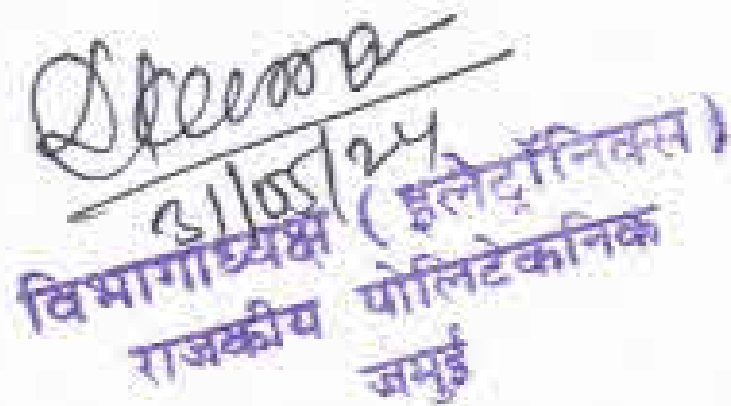 31/05/24
विभागाध्यक्ष (इलेट्रॉनिक्स)
राजकीय पोलिटेकनिक
जमुई